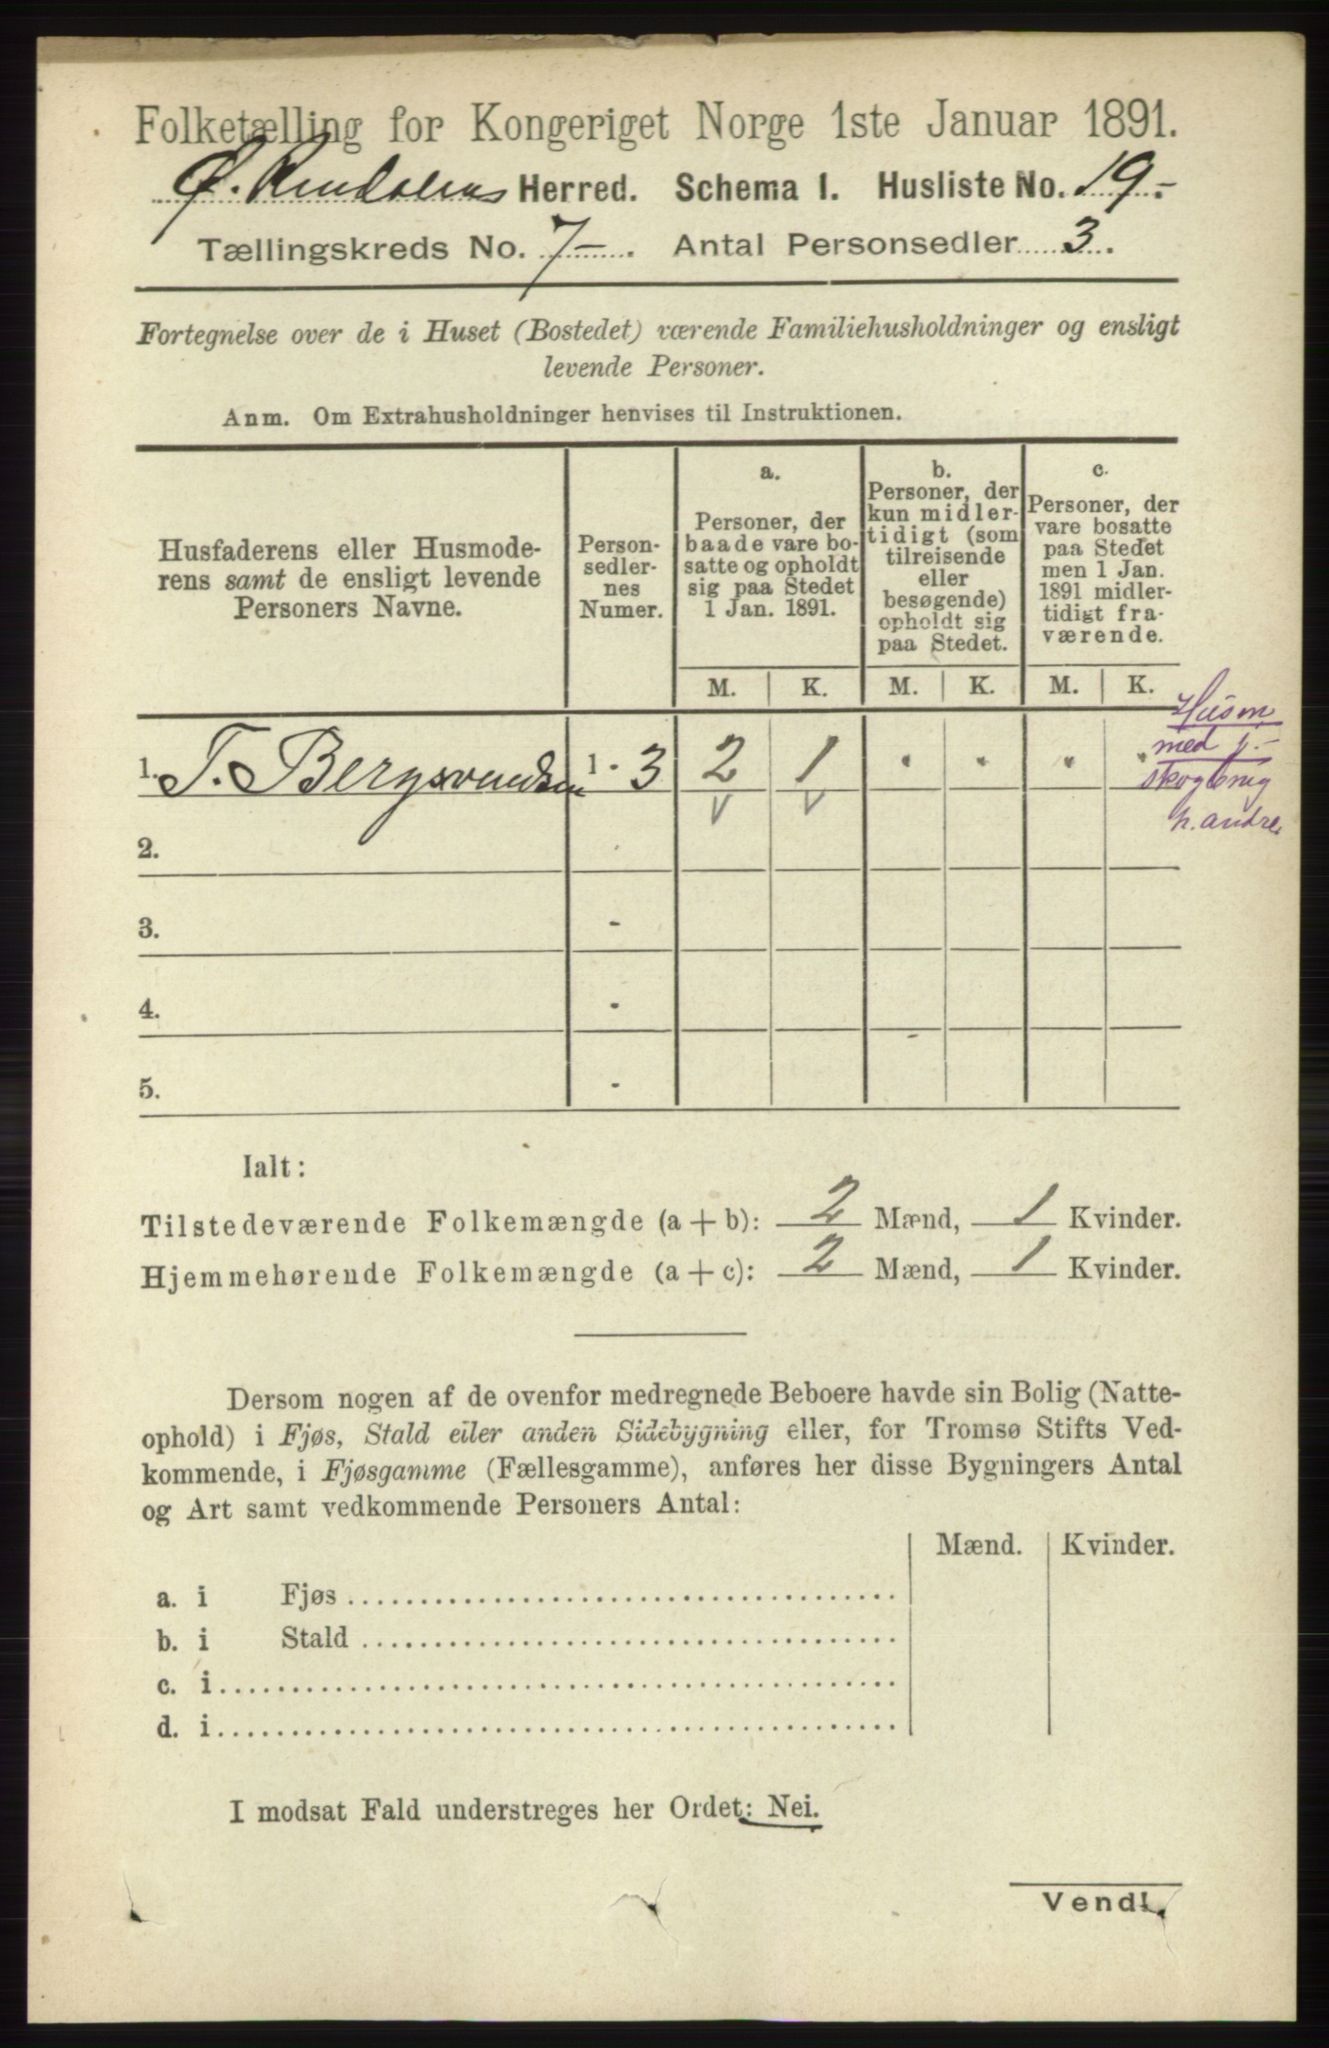 Folketælling for Kongeriget Norge 1ste Januar 1891.
Ø. Rendalens Herred. Schema 1. Husliste No. 19.-
Tællingskreds No. 7-. Antal Personsedler 3.
Fortegnelse over de i Huset (Bostedet) værende Familiehusholdninger og ensligt
levende Personer.
Anm. Om Extrahusholdninger henvises til Instruktionen.
Husfaderens eller Husmode-
rens samt de ensligt levende
Personers Navne.
Person-
sedler-
nes
Numer.
a.
Personer, der
baade vare bo-
satte og opholdt
sig paa Stedet
1 Jan. 1891.
b.
Personer, der
kun midler-
tidigt (som
tilreisende
eller
besøgende)
opholdt sig
paa Stedet.
c.
Personer, der
vare bosatte
paa Stedet
men 1 Jan.
1891 midler-
tidigt fra-
værende.
M. K. M. K. M. K.
1. T. Bergsvendsen 1 - 3 2 1 . . . .
Husm
med j.-
skogbrug
h. andre
2.
3. -
4. -
5. -
Ialt:
Tilstedeværende Folkemængde (a + b): 2 Mænd, 1 Kvinder.
Hjemmehørende Folkemængde (a + c): 2 Mænd, 1 Kvinder.
Dersom nogen af de ovenfor medregnede Beboere havde sin Bolig (Natte-
ophold) i Fjøs, Stald eller anden Sidebygning eller, for Tromsø Stifts Ved-
kommende, i Fjøsgamme (Fællesgamme), anføres her disse Bygningers Antal
og Art samt vedkommende Personers Antal:
Mænd. Kvinder.
a. i Fjøs
b. i Stald
c. i
d. i
I modsat Fald understreges her Ordet: Nei.
Vend!